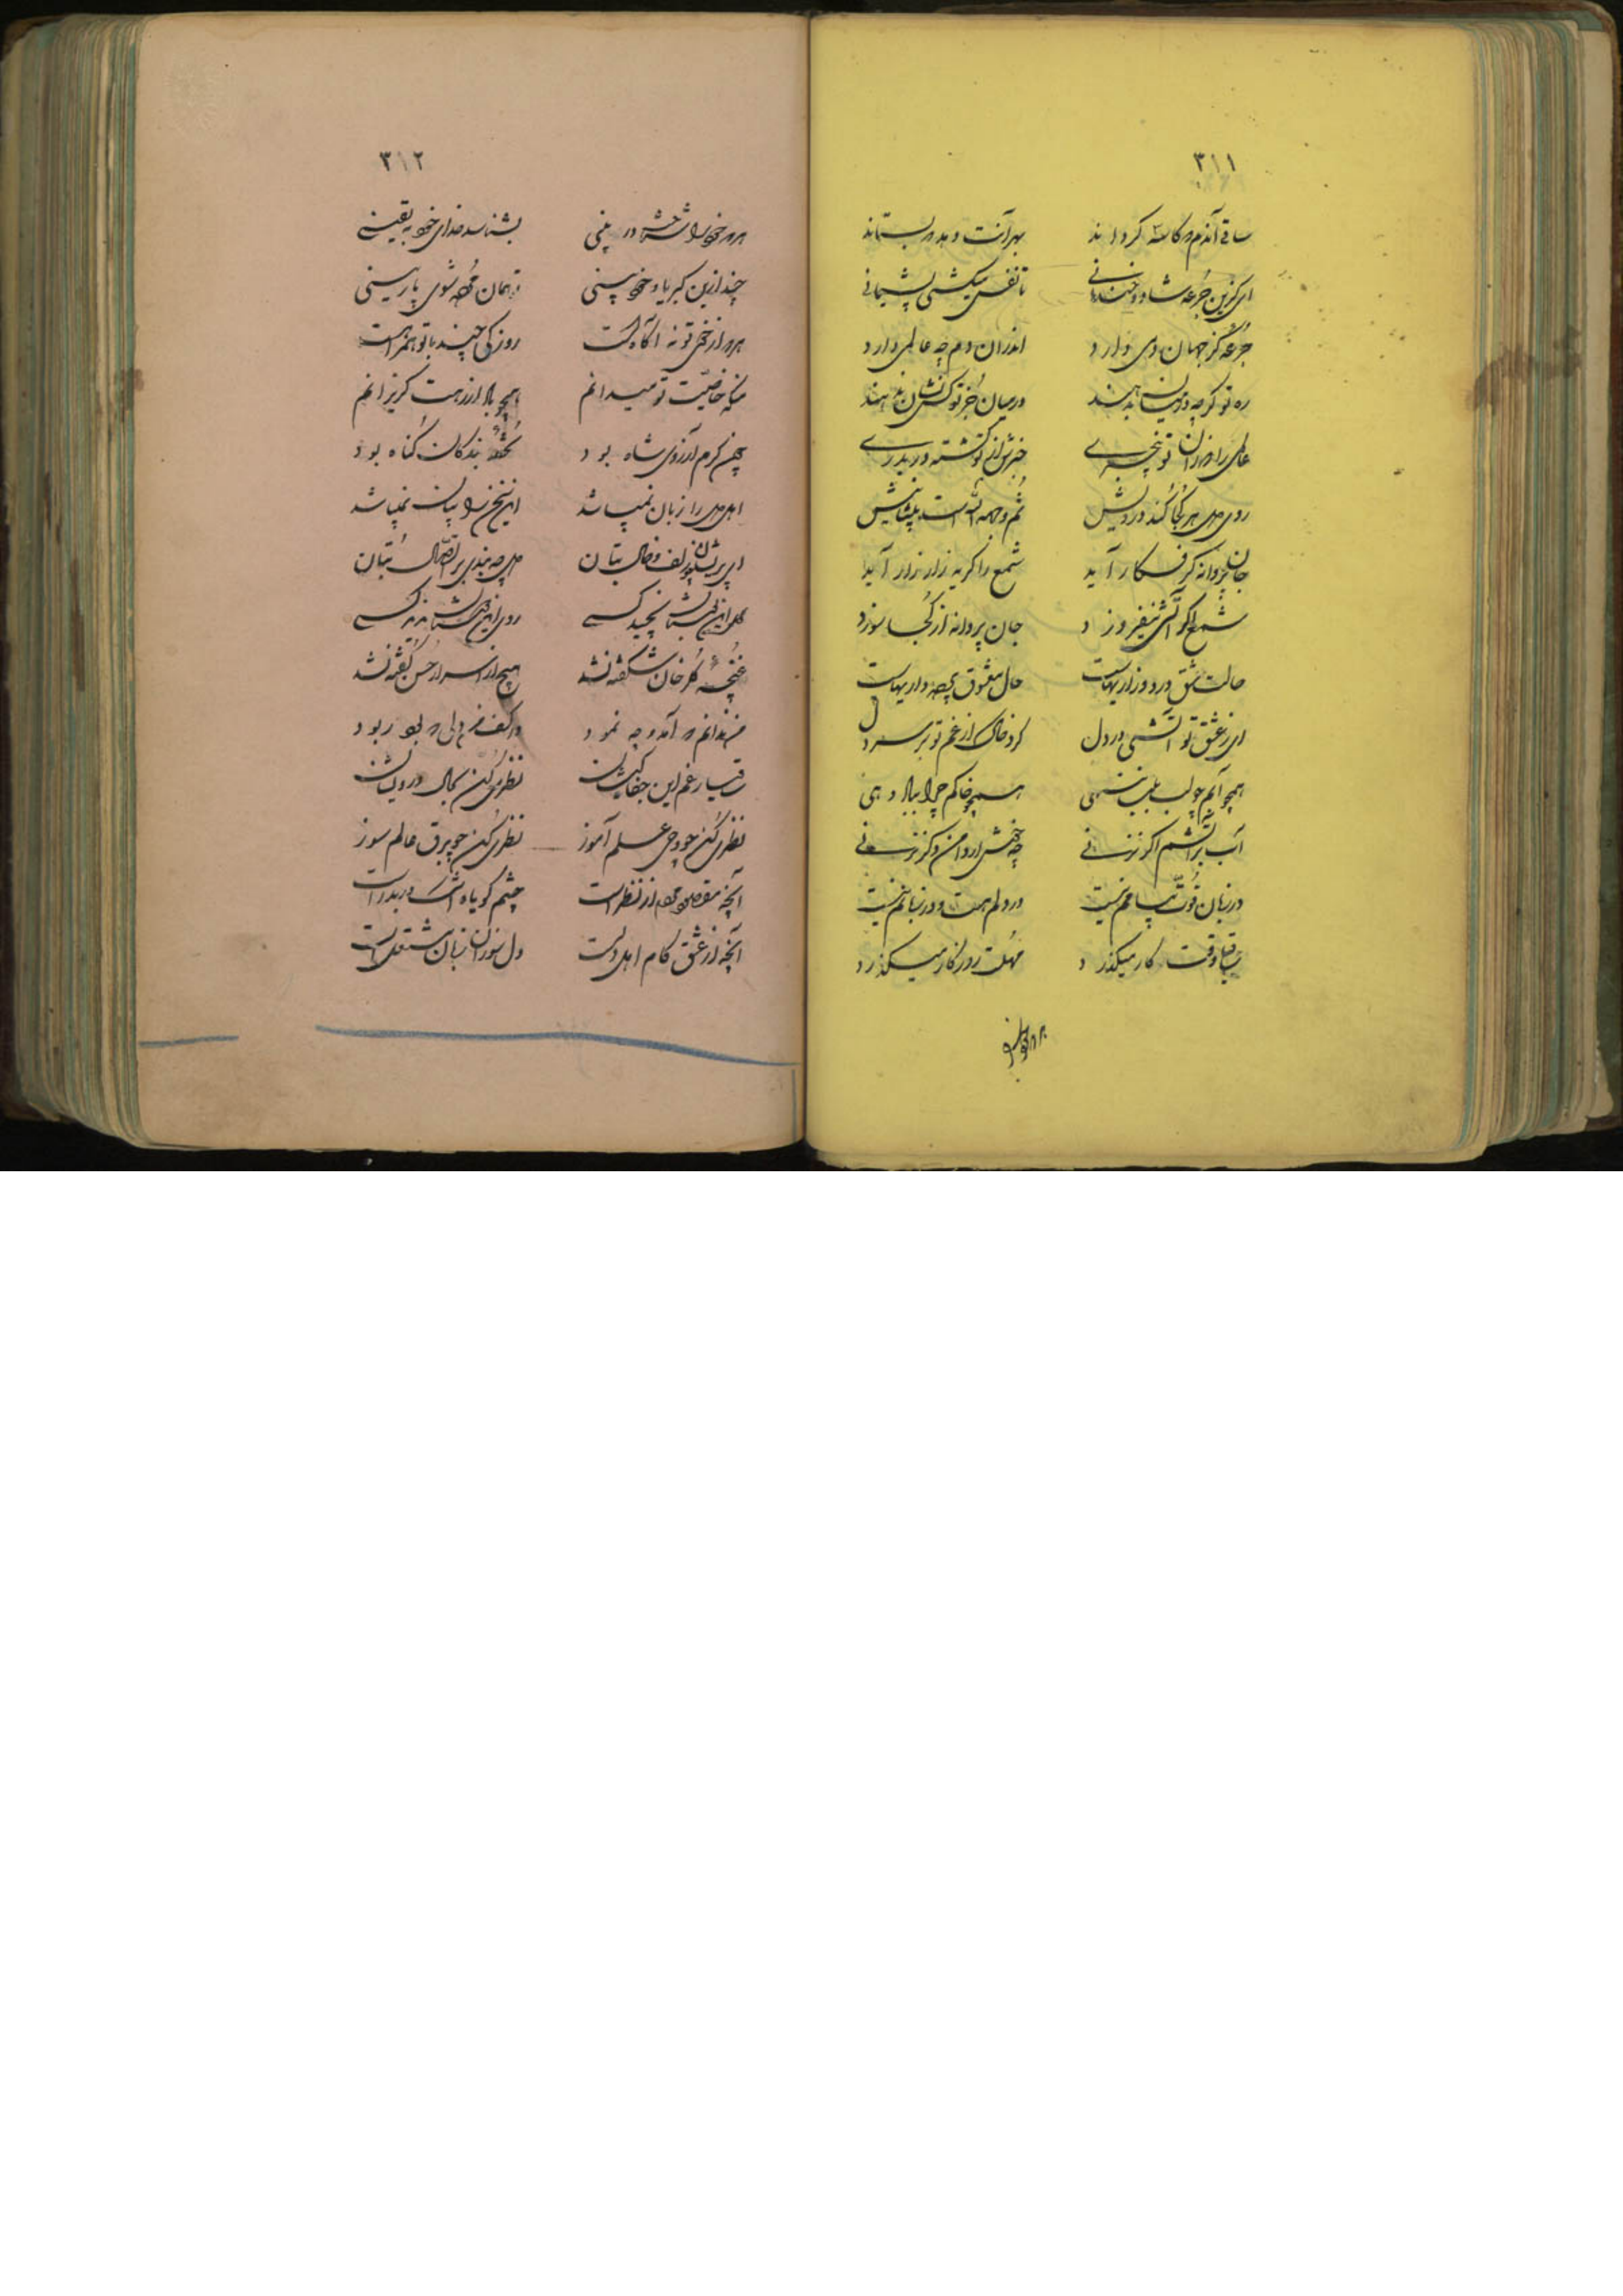 ۳۱۱
ساقی آندم که کاسه گرداند بهر آنت دهد که بستاند
ای کزین جرعه شاد و خندانی تا نفس میکشی پشیمانی
جرعه کز جهان دمی دارد اندران دم چه عالمی دارد
ره تو گرچه در میان بنهند در میان جز تو کس نشان ندهند
عالمی را ز تو بیخبری خبرش از تو گشته دربدری
روی دل هر کجا کند درویش ثم وجه الله است در پیش
جان پروانه گر فکار آید شمع را گریه زار زار آید
شمع اگر آتشی نیفروزد جان پروانه از کجا سوزد
حالت عشق درد و زاریهاست حال معشوق پرده داریهاست
ای ز عشق تو آتشی در دل کرد خاک از غم تو بر سر
همچو آبم چو لب بلب ننهی همچو خاکم چرا بباد دهی
آب بر آتشم اگر نزنی چه کشی دامن و گر نزنی
در زبان قوت پیامم نیست در دلم هست و در زبانم نیست
ساقیا وقت کار میگذرد مهلت روزگار میگذرد
۳۱۲
هر که خود را شناخت در بینی بشناسد خدای خود به یقینی
چند ازین کبریا و خودبینی همان شوی باز بینی
هر که از تو نه آگاهست روزکی چند با تو همراهست
منکه خاصیت تو میدانم همچو باد از برت گریزانم
چون کرم آرزوی شاه بود تحفه بندگان گناه بود
اهل دل را زبان نمیباشد این سخن را بیان نمیباشد
ای پریشان ز زلف و خال بتان دل چه بندی بر اتصال بتان
گل این نچید کسی روی این ندید کسی
غنچه گلرخان شکفته نشد هیچ از اسرار حسن گفته نشد
من ندانم که آمد و چه نمود در کفم دلی که بود ربود
ساقیا رغم این جفاکیشان نظری کن بحال درویشان
نظری کن چو وحی علم آموز نظری کن چو برق عالم سوز
آنچه مقصود از نظر است چشم گویا در بدر است
آنچه از عشق کام اهل دلست دل سوزان زبان مشتعل است